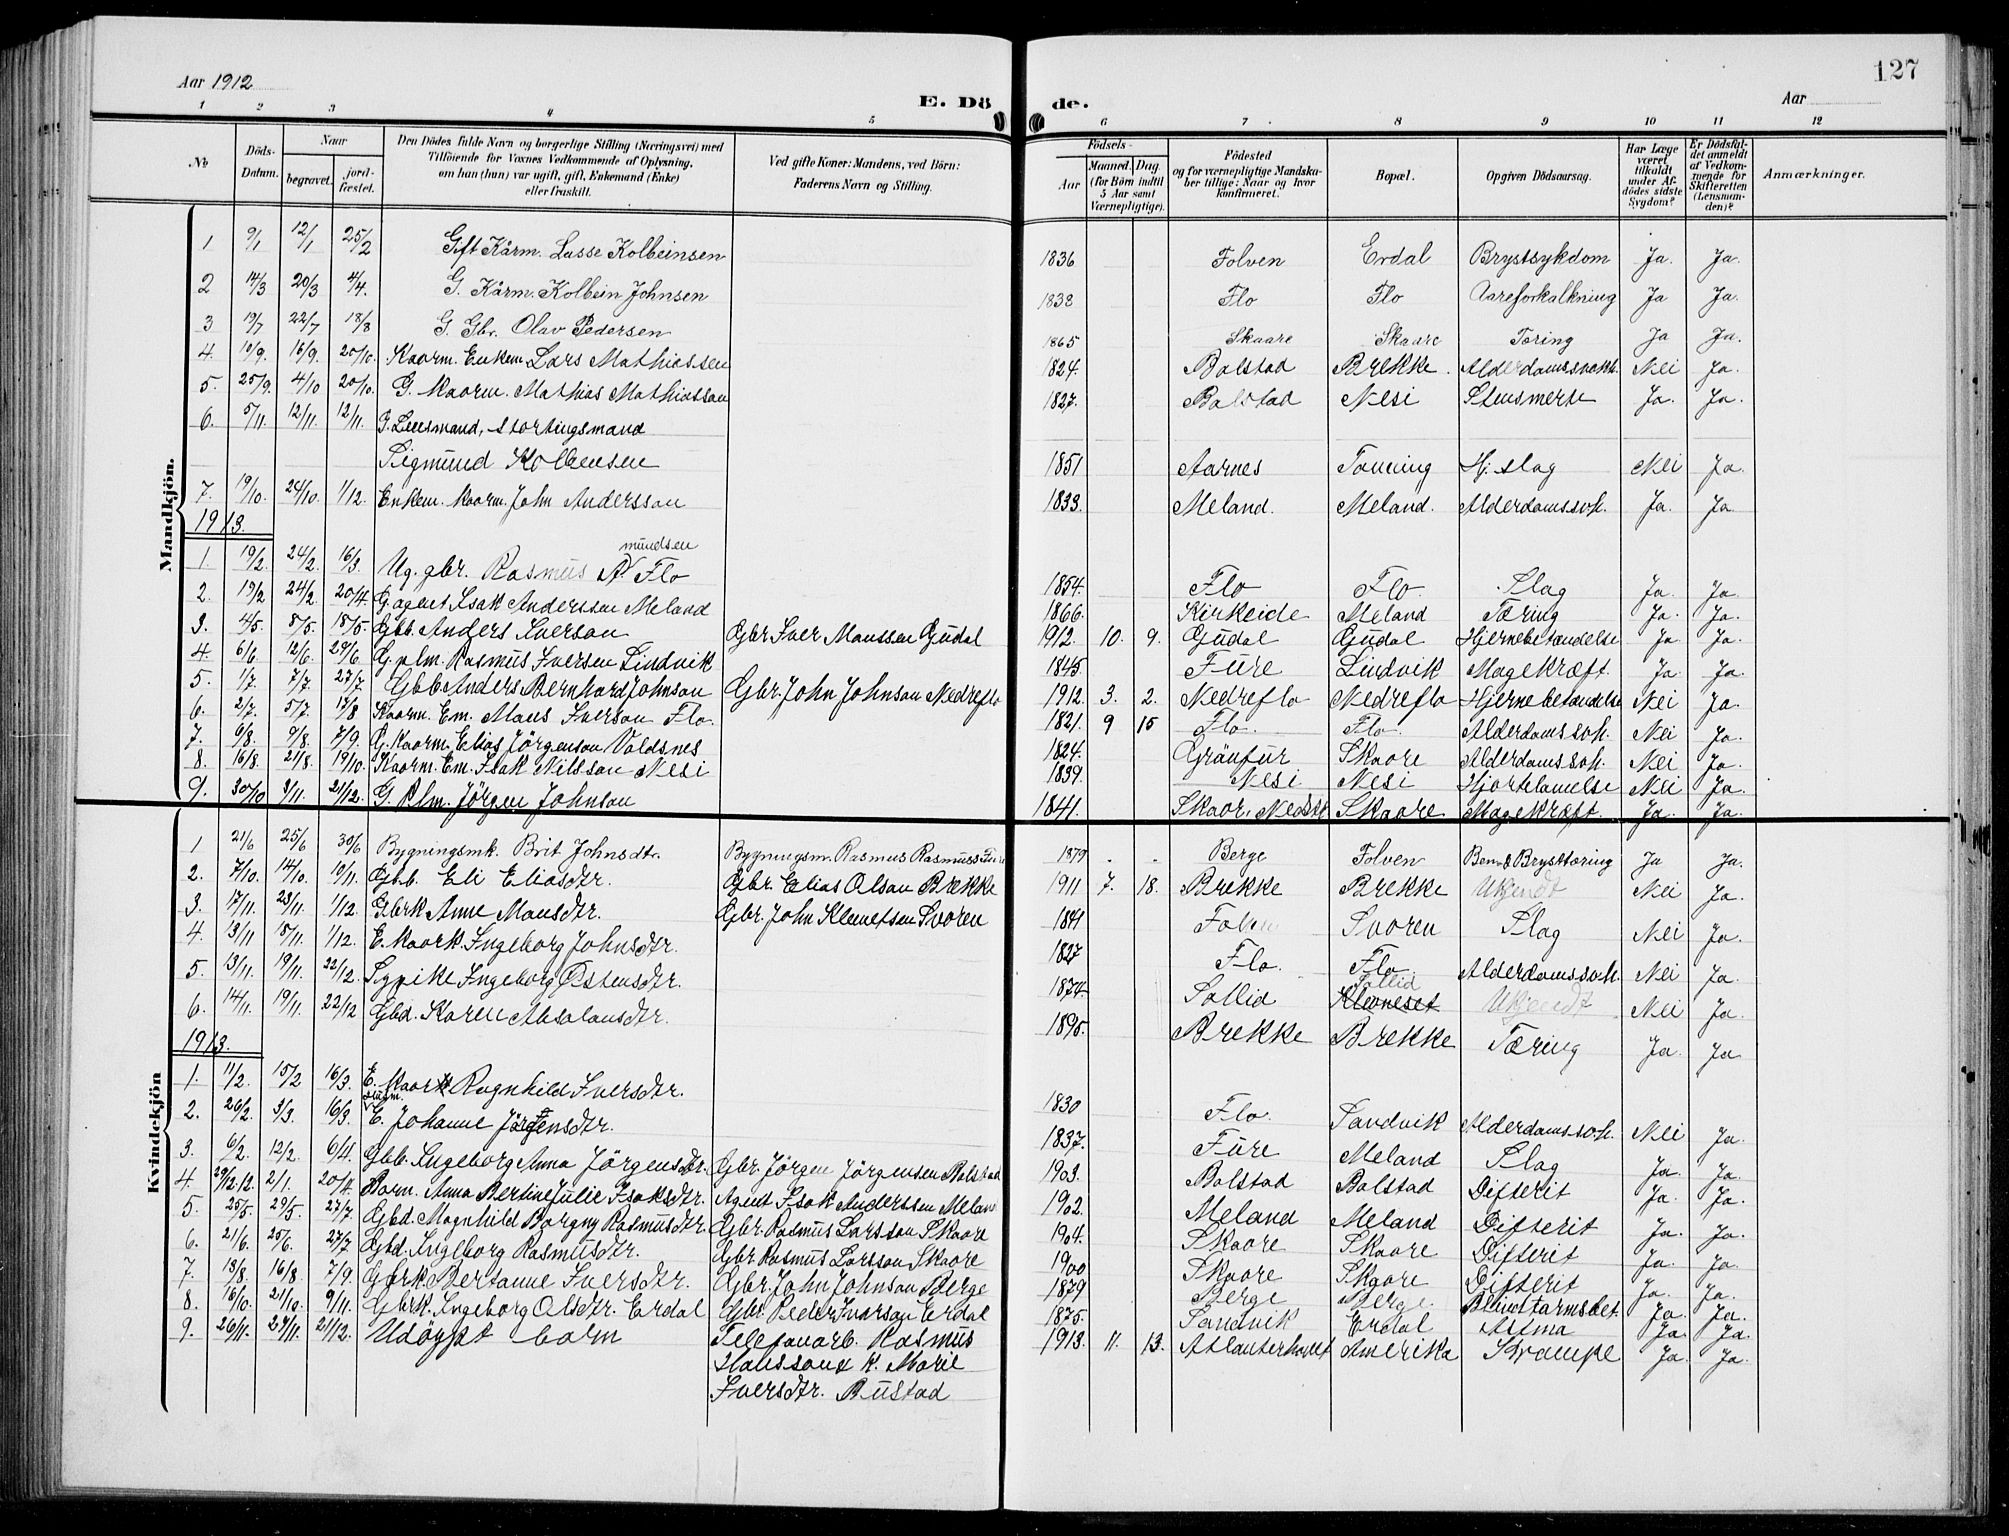 127
Aar 1912
E. Dö de.
Aar
1 2 3 4 5 6 7 8 9 10 11 12
No
Döds-Datum.
Naar
begravet.
jord-fæstet.
Den Dödes fulde Navn og borgerlige Stilling (Næringsvei) med
Tilföiende for Voxnes Vedkommende af Oplysning,
om han (hun) var ugift, gift, Enkemand (Enke)
eller fraskilt.
Ved gifte Koner: Mandens, ved Börn:
Faderens Navn og Stilling.
Födsels-
Aar
Maaned. Dag.
(for Börn indtil
5 Aar samt
Værnepligtige).
Födested
og for værnepligtige Mandska-
ber tillige: Naar og hvor
konfirmeret.
Bopæl.
Opgiven Dödsaarsag.
Har Læge
været
tilkaldt
under Af-
dödes sidste
Sygdom?
Er Dödsfal-
det anmeldt
af Vedkom-
mende for
Skifteretten
(Lensman-
den)?
Anmærkninger.
Mandkjön.
1 9/1 12/1 25/2 Gift Kårm. Lasse Kolbeinsen 1836 Folven Erdal Brystsykdom Ja. Ja.
2 14/3 20/3 4/4. G. Kårm. Kolbein Johnsen 1838 Flo Flo Aareforkalkning Ja Ja.
3 19/7 22/7 18/8 G. Gbr. Olav Pedersen 1865 Skaare Skaare Tæring Ja Ja.
4. 10/9. 16/9. 20/10. Kaarm. Enkem. Lars Mathiassen 1824. Bolstad Brekke. Alderdomssvakh. Nei Ja.
5. 25/9. 4/10 20/10. G. Kaarm. Mathias Mathiasson 1827. Bolstad Nesi Stensmerte Ja. Ja.
6. 5/11. 12/11. 12/11. G. Lensmand, stortingsmand
Sigmund Kolbensen 1851 Aarnes Tonning Hj. slag Nei Ja.
7. 19/10. 24/10. 1/12. Enkem. kaarm. John Andersson 1833. Meland. Meland. Alderdomssvh. Ja. Ja
1913.
mundsen
1. 19/2. 24/2. 16/3. Ug. gbr. Rasmus A. Flo 1854. Flo Flo. Slag Ja. Ja.
2. 19/2 24/2. 20/4. G. agent Isak Anderssen Meland 1866. Kirkeide Meland Tæring Ja. Ja.
3. 4/5. 8/5. 18/5. Gbb. Anders Iverson Gbr. Iver Monssen Gudal 1912. 10. 9. Gudal Gudal Hjernebetændelse Ja Ja.
4. 6/6. 12/6. 29/6. G. plm. Rasmus Iversen Lindvik 1845. Fure Lindvik Magekræft. Ja. Ja.
5. 1/7. 7/7. 27/7. Gbb. Anders Bernhard Johnson Gbr. John Johnson Nedreflo 1912. 3. 2. Nedreflo Nedreflo Hjernebetændelse Nei Ja.
6. 2/7. 5/7. 17/8 Kaarm. Em. Mons Iverson Flo. 1821. 9 15 Flo. Flo. Alderdomssvh. Nei Ja.
7. 6/8. 9/8. 7/9. G. Kaarm. Elias Jörgenson Voldsnes 1824. Gränfur Skaare Alderdomssvh. Nei Ja.
8. 16/8. 21/8. 19/10. Kaarm. Em. Isak Nilsson Nesi 1839. Nesi Nesi Hjertelamelse Nei Ja.
9. 30/10 3/11. 21/12. G. Plm. Jörgen Johnson 1841. Skaar, Nedstr Skaare Magekræft. Ja. Ja.
Kvindekjön
1 21/6 25/6 30/6 Bygningsmk. Brit Johnsdtr. Bygningsm. Rasmus Rasmuss. Fure 1879 . . Berge Folven Ben & Brysttæring Ja Ja.
2. 7/10. 14/10. 10/11. Gbb. Eli Eliasdtr. Gbr. Elias Olson Brekke 1911 7. 18. Brekke Brekke Ukjendt Nei Ja.
3. 17/11. 23/11. 1/12. Gbrk Anne Monsdtr. Gbr. John Klemetsen Svoren 1841 Folven Svoren Slag Nei Ja.
4. 13/11 18/11. 1/12. E. Kaark. Ingeborg Johnsdtr. 1827 Flo. Flo Alderdomssvh. Nei Ja.
5. 13/11. 19/11. 22/12. Sypike Ingeborg Østensdtr. 1874. Sollid Sollid Klevneset Ukjendt Nei Ja.
6. 14/11. 19/11. 22/12 Gbd. Karen Absalonsdtr. 1895. Brekke Brekke Tæring Ja. Ja
1913.
1. 11/2. 15/2 16/3. E. Kaark Ragnhild Iversdtr. 1830 Flo. Sandvik Alderdomssvh. Nei Ja.
2. 26/2. 3/3. 16/3. E. Johanne Jörgensdtr. 1837. Fure Meland Slag Ja. Ja.
3. 6/2. 12/2. 6/4. Gbb. Ingeborg Anna Jörgensdtr. Gbr. Jörgen Jörgensen Bolstad 1903. Bolstad Bolstad Difterit Ja. Ja.
4. 29/12.12. 2/1. 20/4. Barn. Anna Bertine Julie Isaksdtr. Agent Isak Anderssen Meland 1902. Meland Meland Difterit Ja. Ja.
5. 25/5. 29/5. 27/7. Gbd. Magnhild Borgny Rasmusdtr. Gbr. Rasmus Larsson Skaare 1904. Skaare Skaare Difterit Ja. Ja.
6. 21/6. 25/6. 27/7 Gbd. Ingeborg Rasmusdtr. Gbr. Rasmus Larsson Skaare 1900 Skaare Skaare Difterit Ja. Ja.
7. 13/8. 16/8. 7/9. Gbrk. Bertanne Iversdtr. Gbr. John Johnson Berge 1879 Berge Berge. Blindtarmsbet. Ja. Ja.
8. 16/10. 21/10. 9/11. Gbrk. Ingeborg Olsdtr. Erdal Gbr. Peder Ivarson Erdal 1875. Sandvik Erdal Astma Ja. Ja.
9. 26/11. 27/11. 21/12. Udöypt barn Telefonarb. Rasmus 1913. 11. 13. Atlanterhavet Amerika Krampe Ja. Ja.
Hanssen & k. Marie
Iversdtr. Bustad